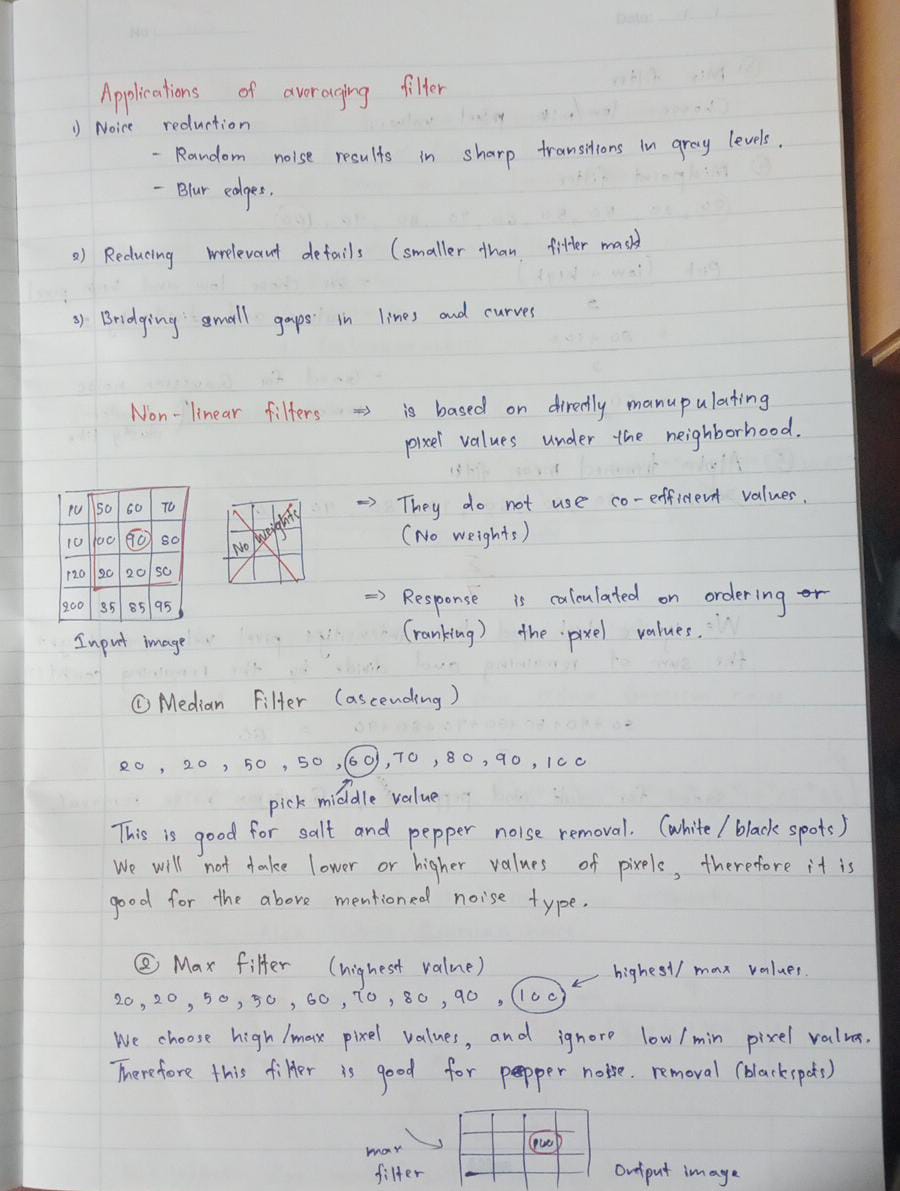 No
Date:
Applications of averaging filter
1) Noice reduction
- Random noise results in sharp transitions in gray levels.
- Blur edges.
2) Reducing irrelevant details (smaller than filter mask)
3) Bridging small gaps in lines and curves
Non-linear filters => is based on directly manupulating
pixel values under the neighborhood.
=> They do not use co-efficient values.
(No weights)
=> Response is calculated on ordering or
(ranking) the pixel values.
10 50 60 70
10 100 90 80
120 20 20 50
200 35 85 95
Input image
No weights
① Median Filter (ascending)
20, 20, 50, 50, 60, 70, 80, 90, 100
pick middle value
This is good for salt and pepper noise removal. (white/black spots)
We will not take lower or higher values of pixels, therefore it is
good for the above mentioned noise type.
② Max filter (highest value)
highest/max values.
20, 20, 50, 50, 60, 70, 80, 90, 100
We choose high/max pixel values, and ignore low/min pixel value.
Therefore this filter is good for pepper noise. removal (blackspots)
max
filter
100
Output image